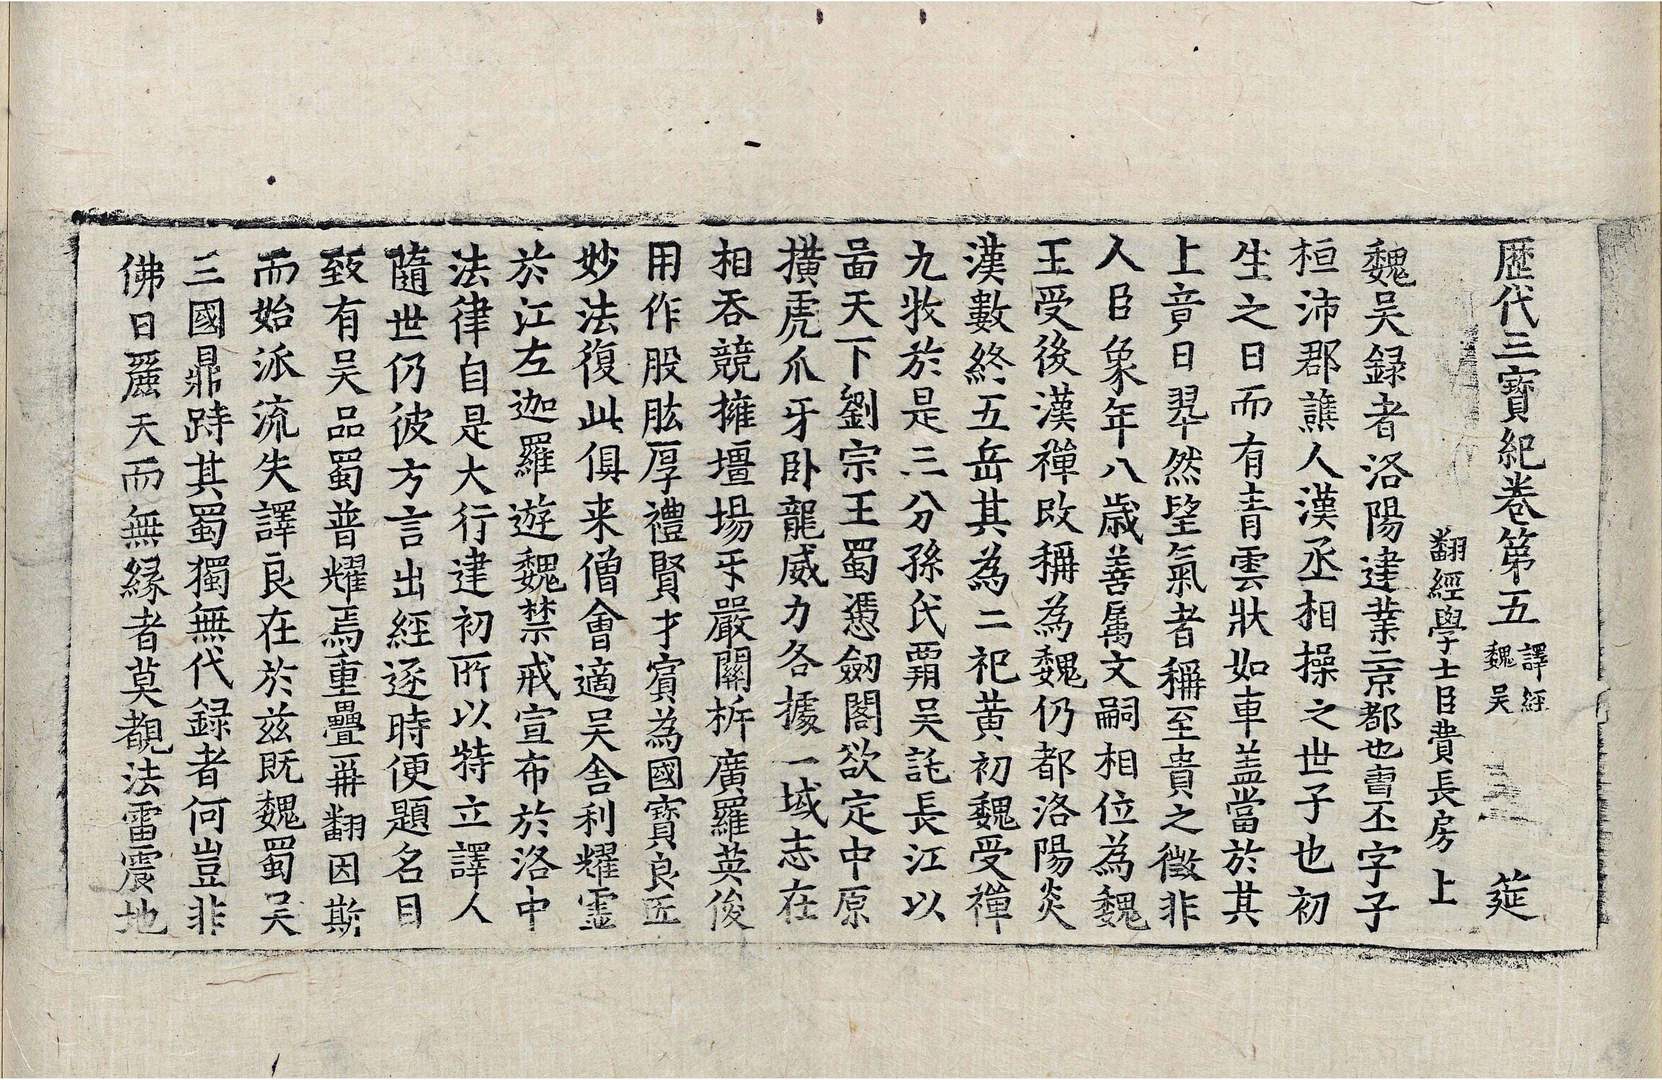 歷代三寶紀卷第五 譯經魏吳 筵
翻經學士臣費長房 上
魏吳録者洛陽建業二京都也曹丕字子
桓沛郡譙人漢丞相操之世子也初
生之日而有青雲狀如車盖當於其
上竟日翆然望氣者稱至貴之徵非
人臣象年八歳善属文嗣相位為魏
王受後漢禪改稱為魏仍都洛陽炎
漢數終五岳其為二祀黄初魏受禪
九牧於是三分孫氏覇吳託長江以
啚天下劉宗王蜀憑劒閣欲定中原
撗虎爪牙卧龍威力各據一域志在
相吞競擁壇場牙嚴關㭊廣羅英俊
用作股肱厚禮賢才賓為國寶良匠
妙法復此俱来僧會適吳舎利耀霊
於江左迦羅遊魏禁戒宣布於洛中
法律自是大行建初所以特立譯人
隨世仍彼方言出經逐時便題名目
致有吳品蜀普耀焉重疊再翻因斯
而始派流失譯良在於兹既魏蜀吳
三國鼎跱其蜀獨無代録者何豈非
佛日麗天而無縁者莫覩法雷震地